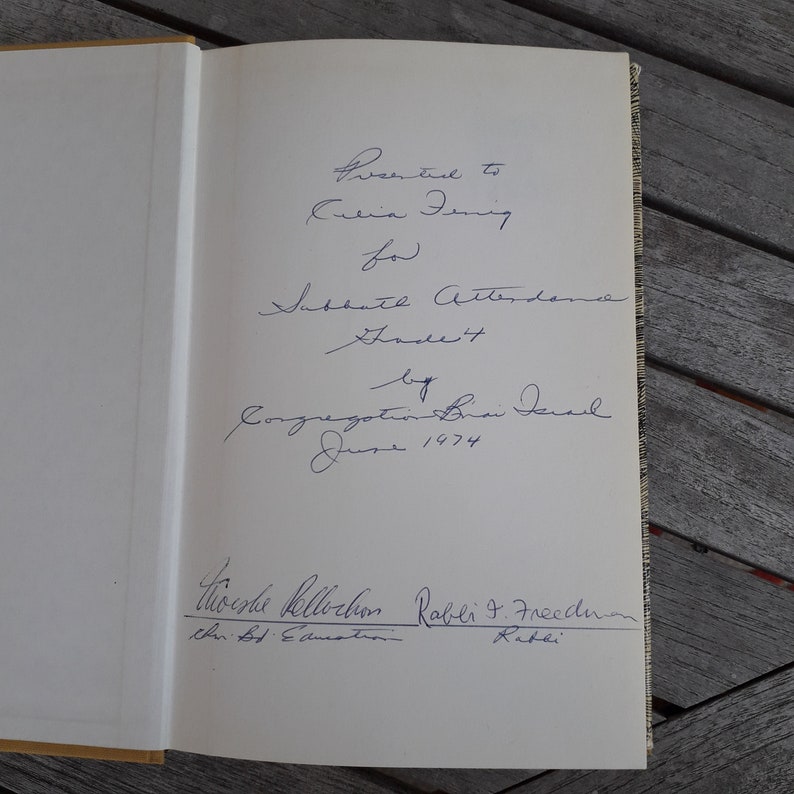 Presented to
Celia Fenig
for
Sabbath Attendance
Grade 4
by
Congregation B'nai Israel
June 1974
Rabbi I. Freedman
Chr. Bd. Education Rabbi